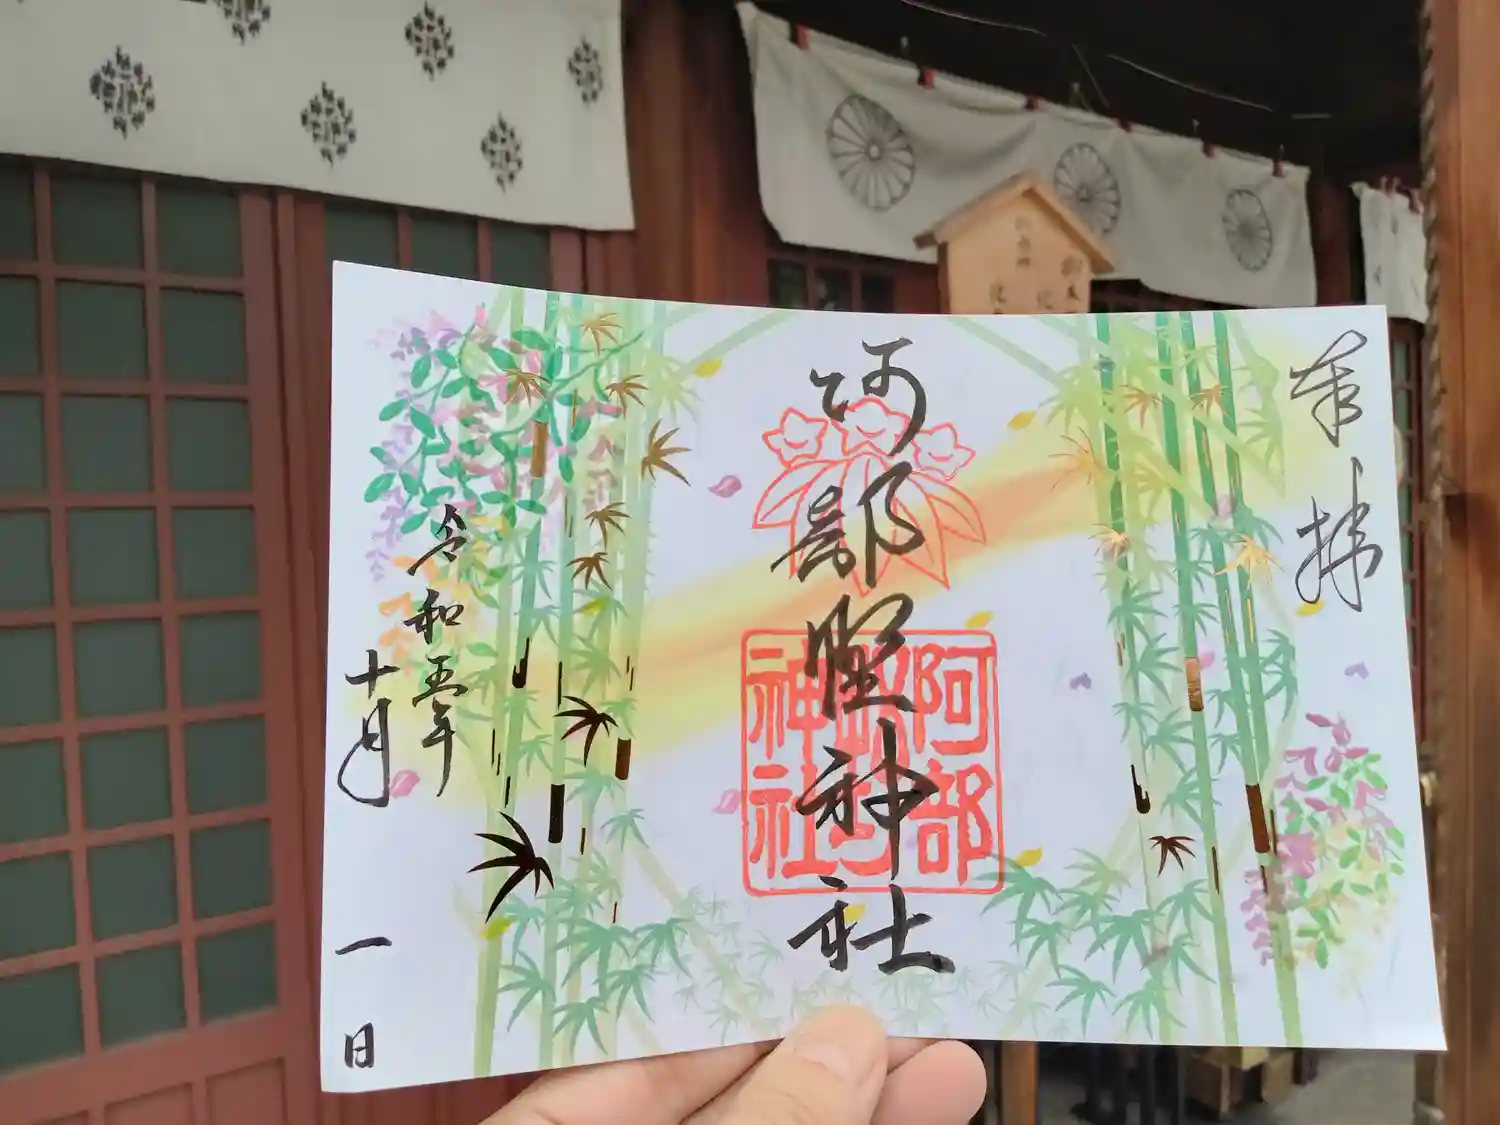 奉拝
阿部野神社
阿部野神社
令和五年
十月
一日